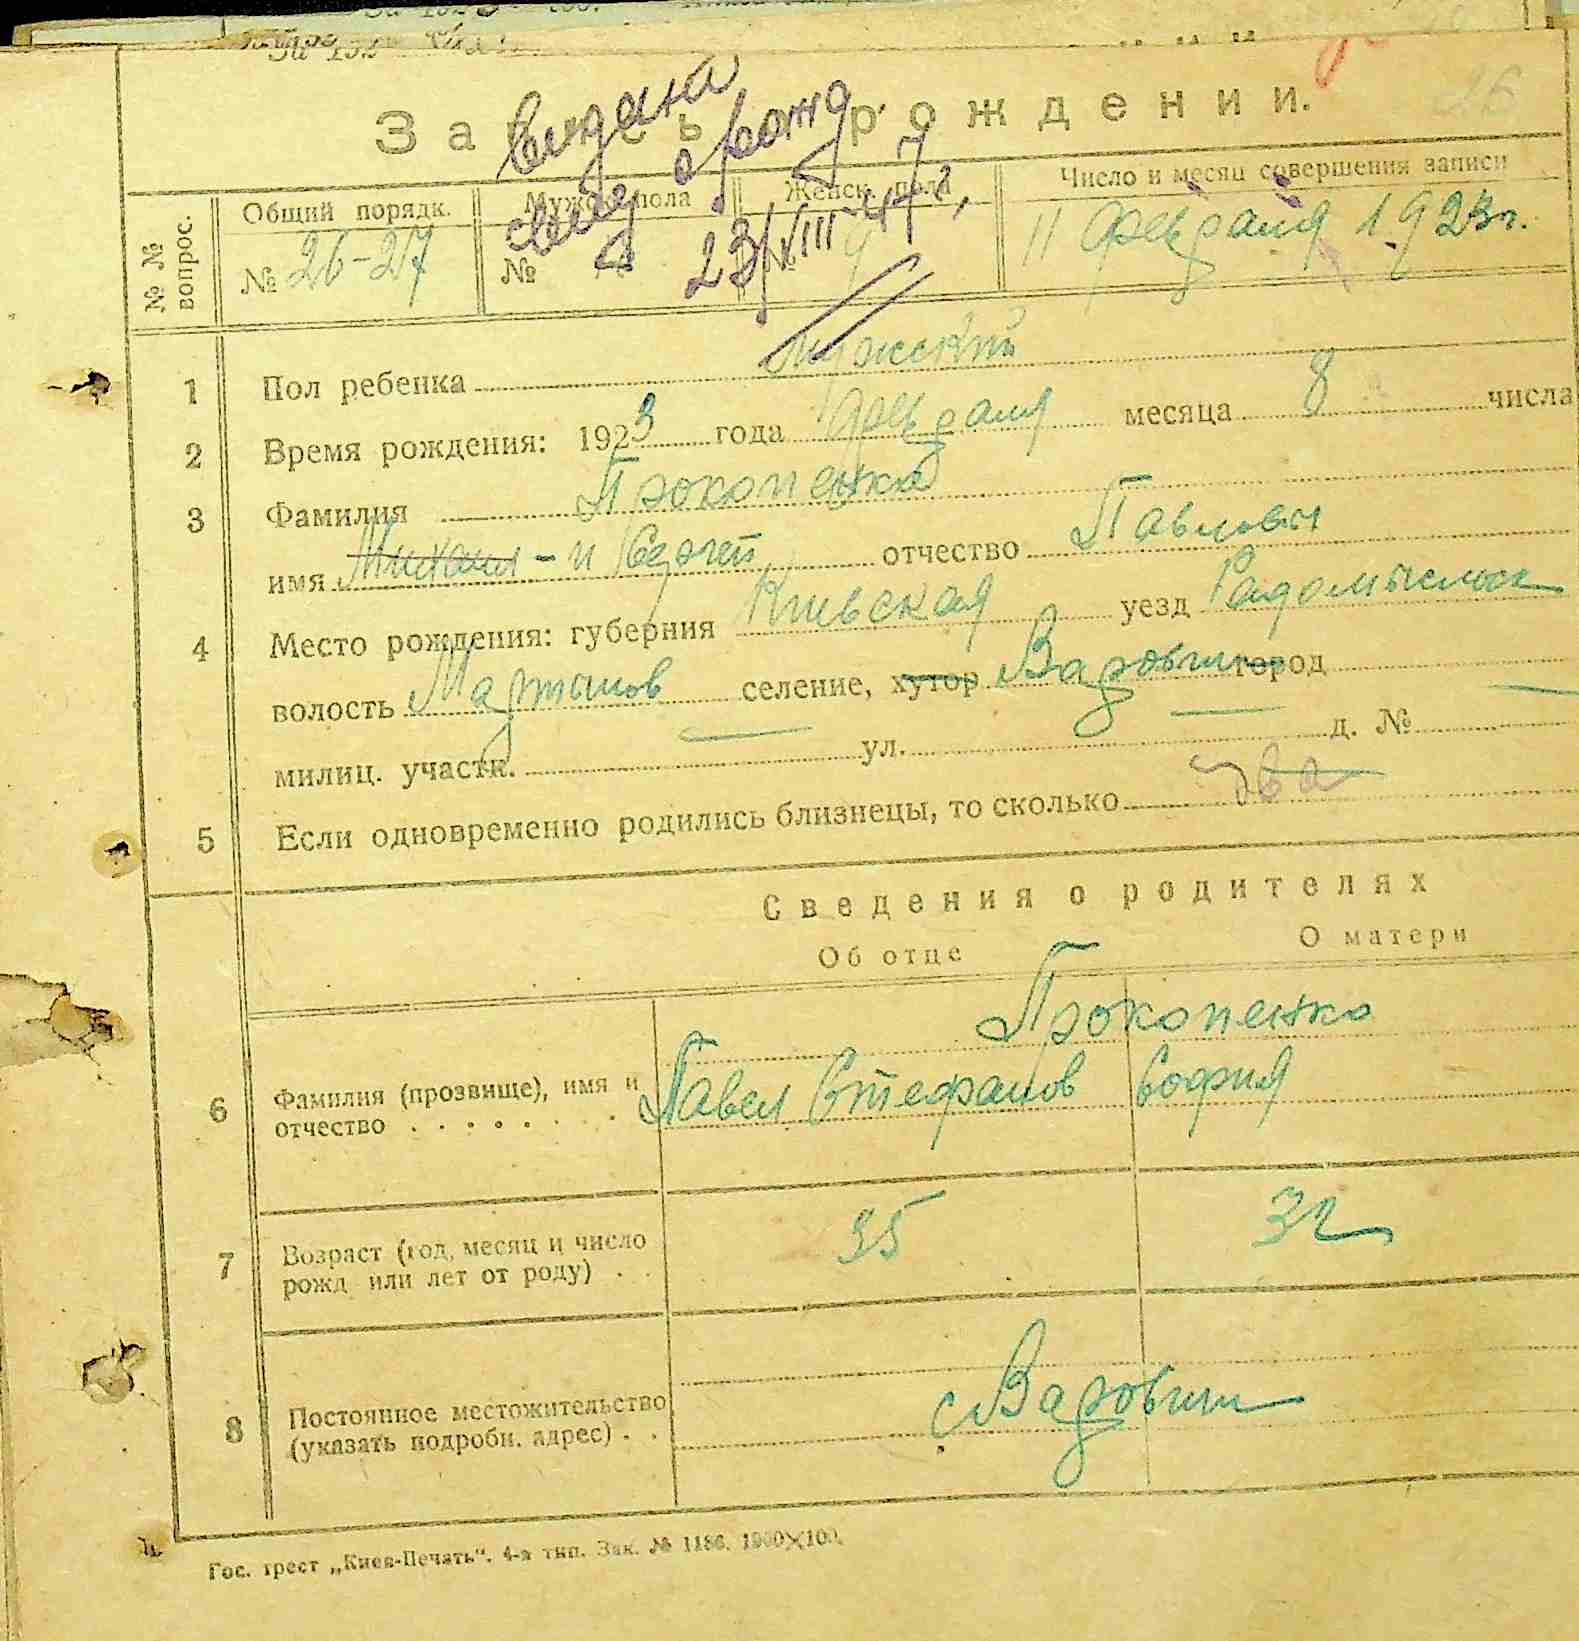 Запись о рождении.
Выдана
свид о рожд
23/VIII 47 г.
№ № вопрос.
Общий порядк.
№ 26-27
Мужск. пола
№
Женск. пола
№ 9
Число и месяц совершения записи
11 февраля 1923г.
1 Пол ребенка мужский
2 Время рождения: 1923 года февраля месяца 8 числа
3 Фамилия Прокопенко
имя Михаил - и Сергей отчество Павлович
4 Место рождения: губерния Киевская уезд Радомысльск
волость Мартынов селение, хутор Варовичи город
милиц. участк. — ул. — д. № —
5 Если одновременно родились близнецы, то сколько два
Сведения о родителях
Об отце О матери
Прокопенко
6 Фамилия (прозвище), имя и отчество Павел Стефанов София
7 Возраст (год, месяц и число рожд или лет от роду) 35 32
8 Постоянное местожительство (указать подробн. адрес) с Варовичи
Гос. трест „Киев-Печать". 4-я тип. Зак. № 1186. 1000×100.